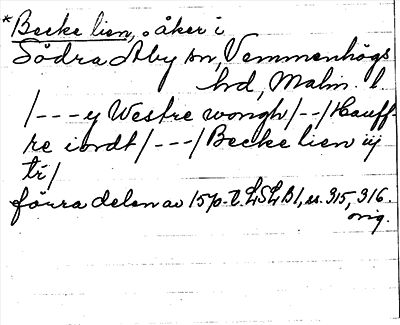 *Becke lien, åker i
Södra Åby sn, Vemmenhögs
hd, Malm. l.
/---y Westre wongh/--/Hauff-
re iordt/---/Becke lien iij
tr/
förra delen av 15/p-t. LSLB1, s. 315, 316.
orig.